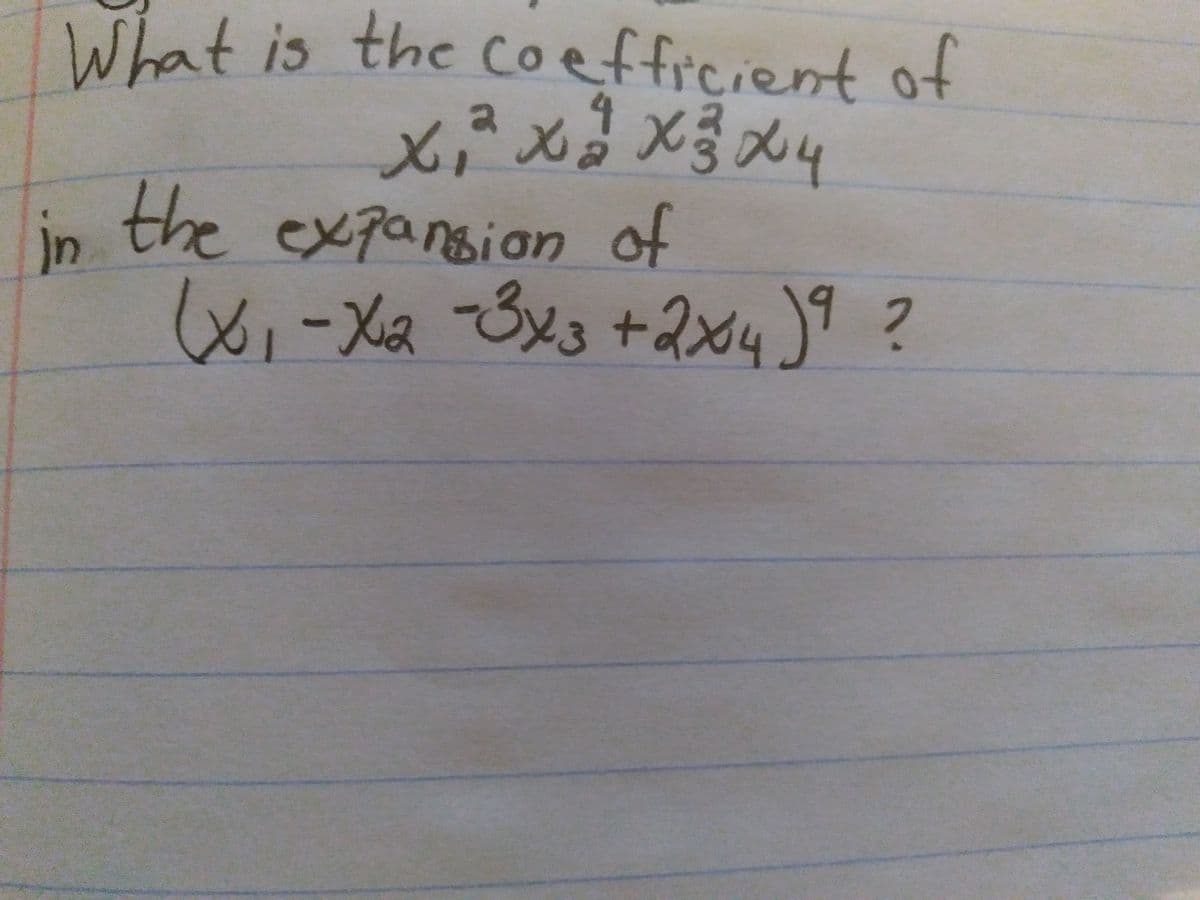 What is the coefficient of
x₁² x₂⁴ x₃² x₄
in the expansion of
(x₁ - x₂ - 3x₃ + 2x₄)⁹ ?